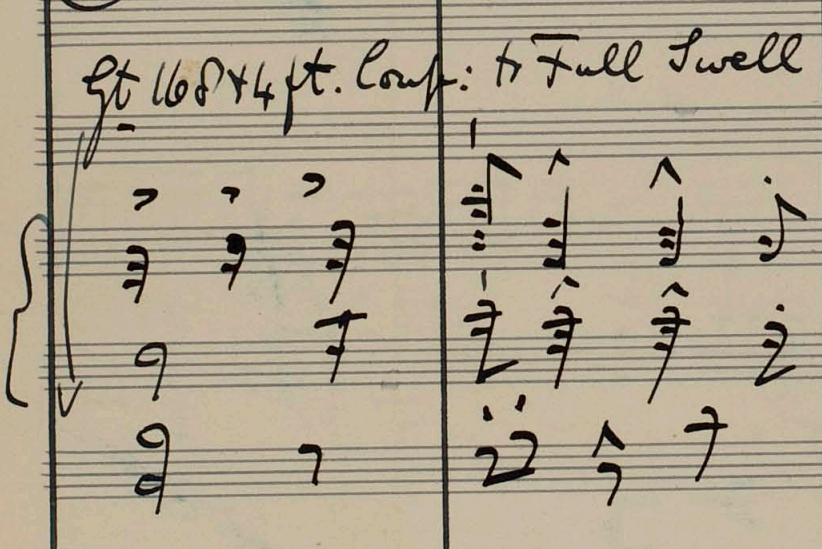 Gt 16 8 + 4 ft. Coup: to Full Swell